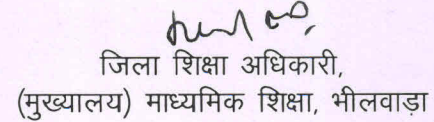 जिला शिक्षा अधिकारी,
(मुख्यालय) माध्यमिक शिक्षा, भीलवाड़ा